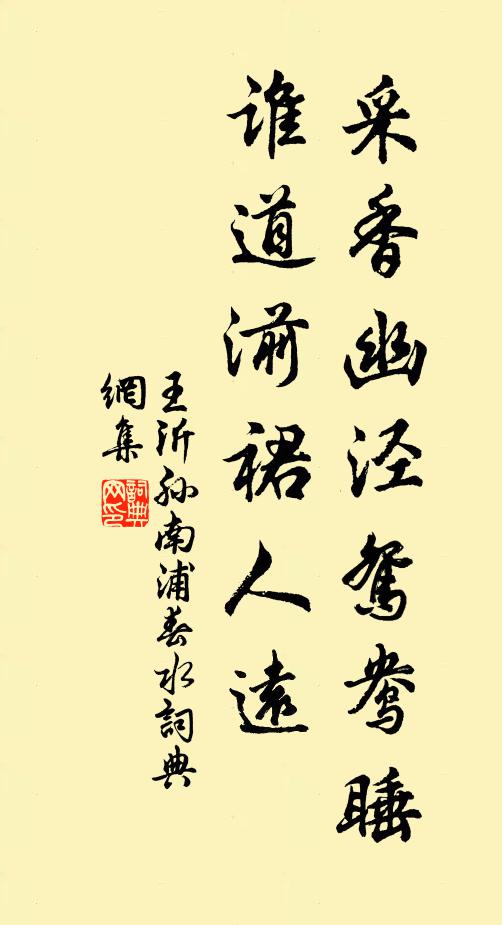 采香幽泾鸳鸯睡
谁道湔裙人遠
王沂孙南浦春水詞典
網集
詞典
网印